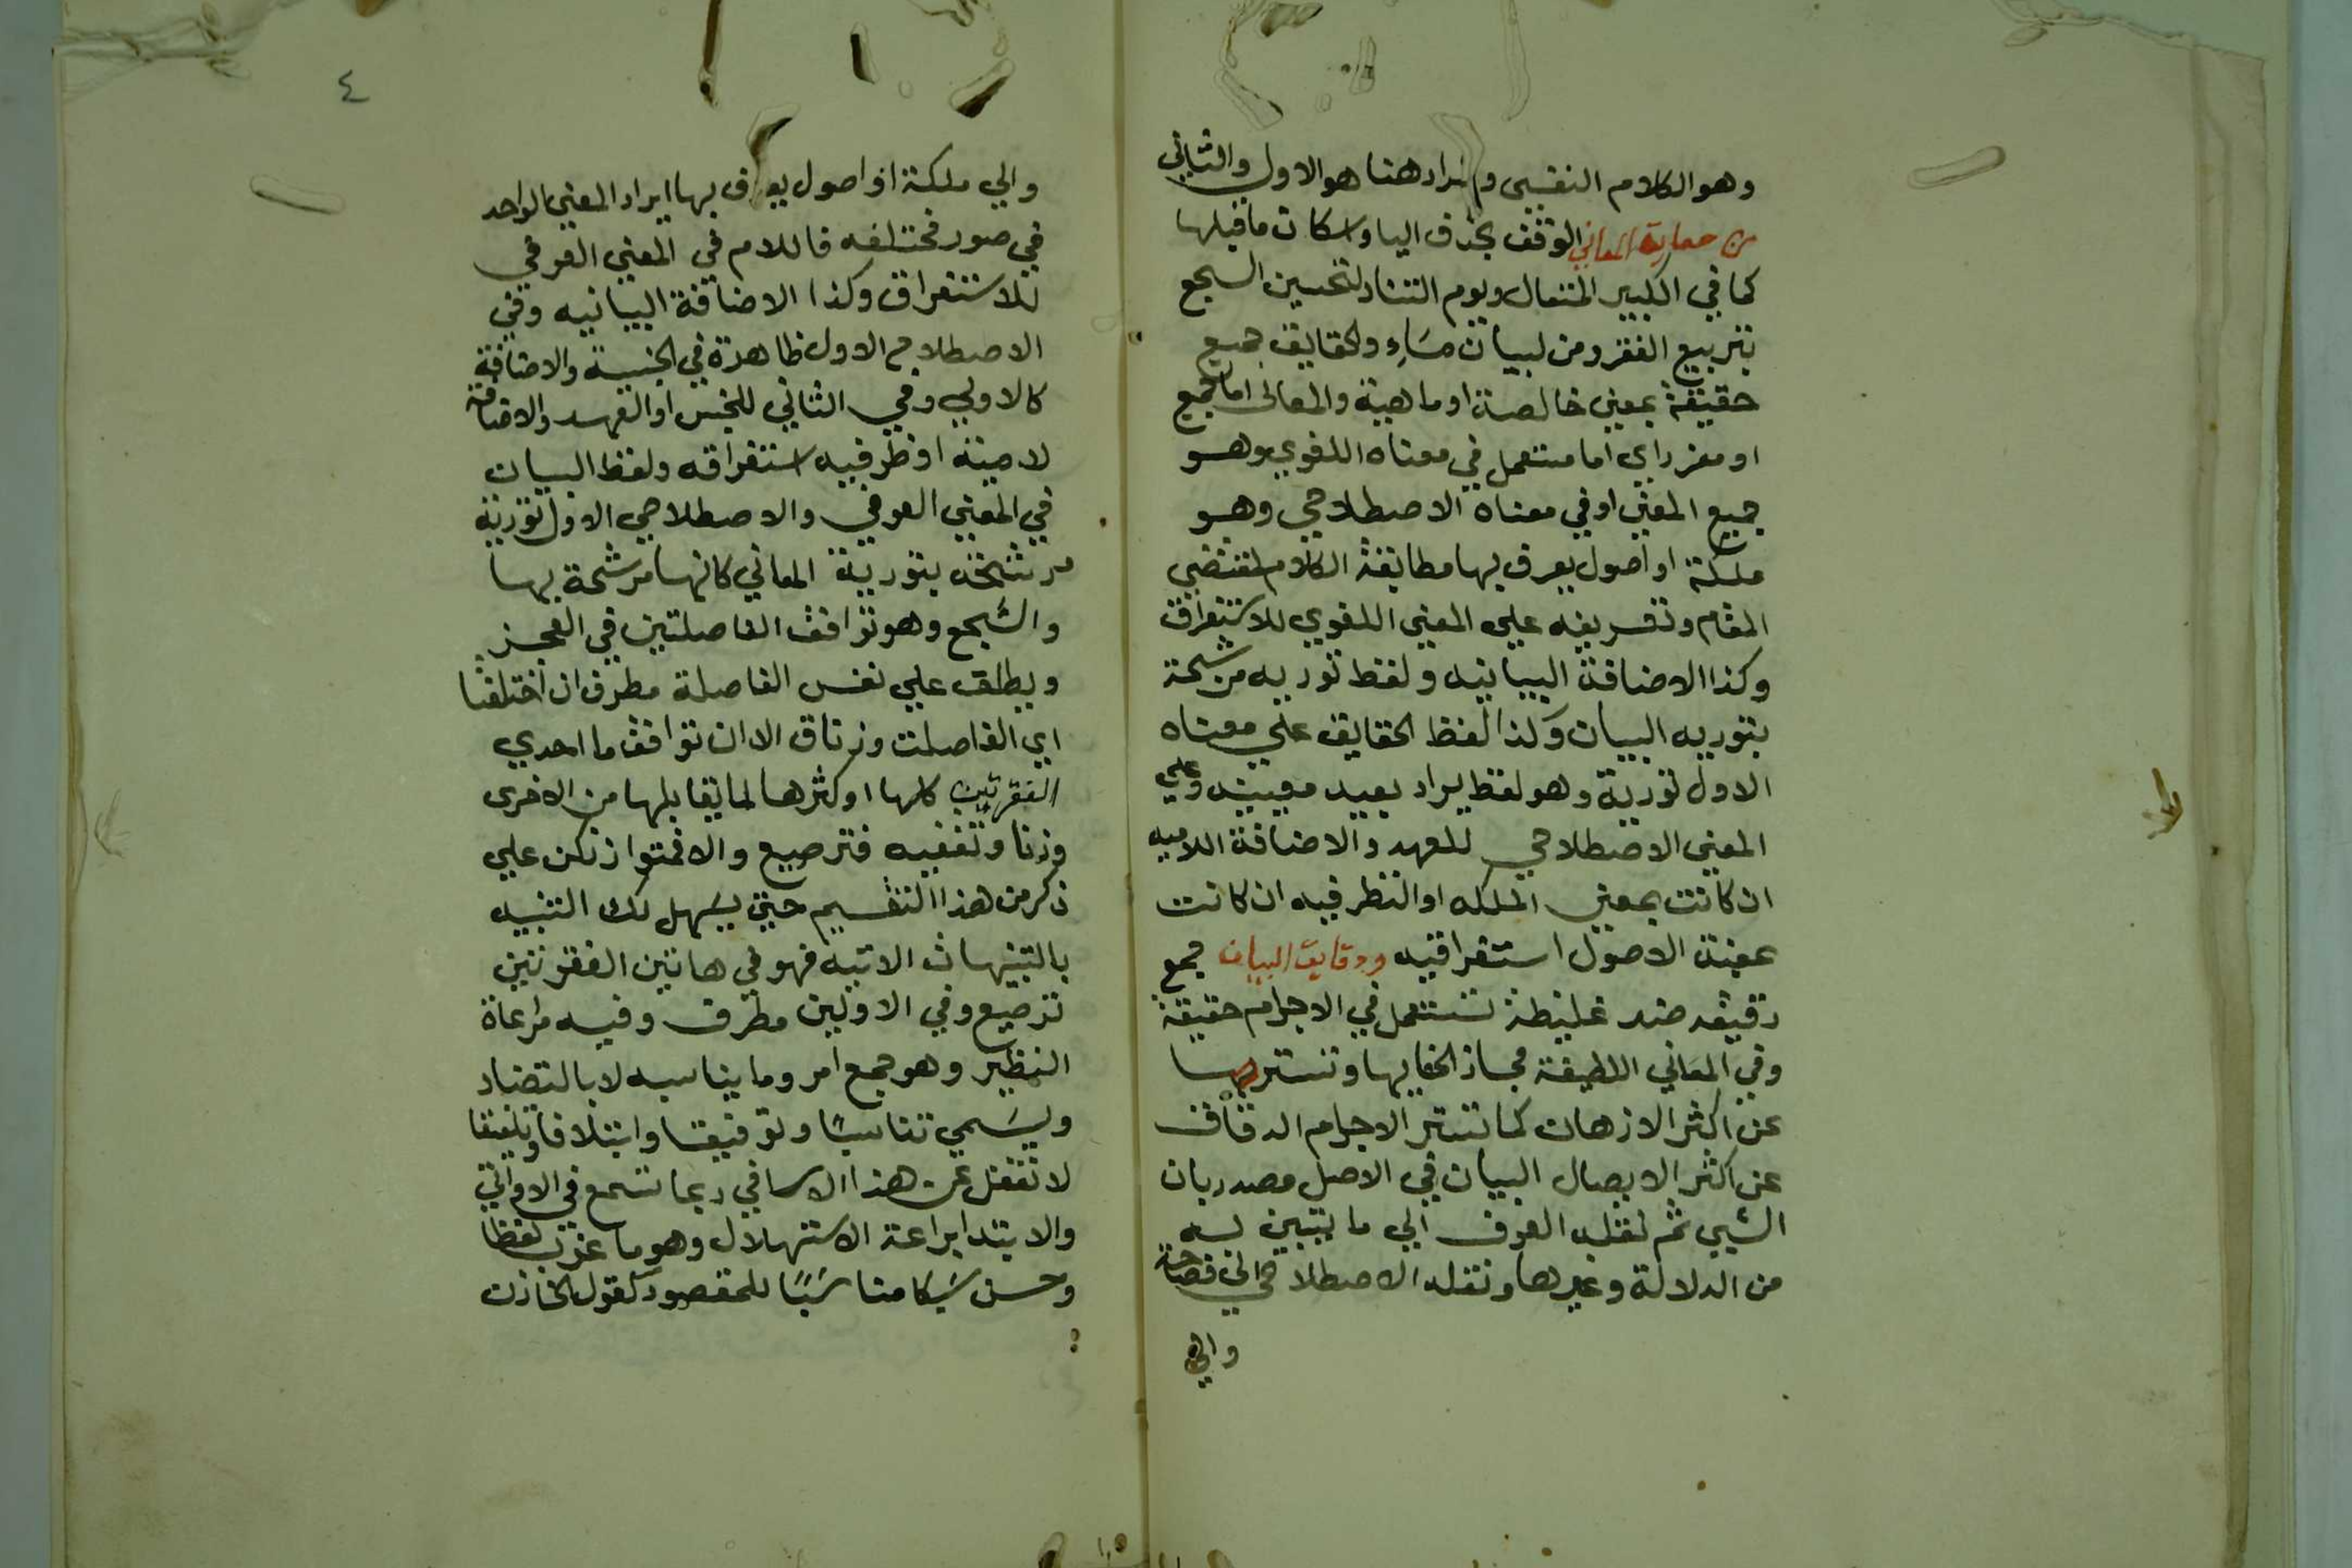 وهو الكلام النفسي والمراد هنا هو الاول والثاني
من حقايق المعاني الوقف بحذف اليا واسكان ما قبلها
كما في الكبير المتعال ويوم التناد لتحسين السجع
بتربيع الفقر ومن لبيان والحقايق جميع
حقيقة بمعني خالصة او ماهية والمعاني اما جمع
او مفرد اي اما مستعمل في معناه اللغوي وهو
جميع المعني او في معناه الاصطلاحي وهو
ملكة او اصول يعرف بها مطابقة الكلام لمقتضي
المقام وتعريفه علي المعني اللغوي للاستغراق
وكذا الاضافة البيانيه ولفظ توريه مرشحة
بتوريه البيان وكذا لفظ الحقايق علي معناه
الاول تورية وهو لفظ يراد بعيد معنييه وعلي
المعني الاصطلاحي للعهد والاضافة اللاميه
ان كانت بمعني الملكه او النظرفيه ان كانت
بمعني الاصول استغراقيه ودقايق البيان جمع
دقيقه ضد غليظة تستعمل في الاجرام حقيقة
وفي المعاني اللطيفة مجاز الخفايها وتسترها
عن اكثر الاذهان كما تستتر الاجرام الدقاق
عن اكثر الابصار البيان في الاصل مصدر بان
الشيي ثم نقله العرف الي ما يتبين به
من الدلالة وغيرها ونقله الاصطلاحي الي فصاحة
والي
٤
والي ملكة او اصول يعرف بها ايراد المعني الواحد
في صور مختلفه فاللام في المعني العرفي
للاستغراق وكذا الاضافة البيانيه وفي
الاصطلاحي الاول ظاهرة في الجنسية والاضافة
كالاولي وفي الثاني للجنس او العهد والاضافة
لامية او ظرفيه استغراقه ولفظ البيان
في المعني العرفي والاصطلاحي الاول تورية
مرشحة بتورية المعاني كانها مرشحة بها
والسجع وهو توافق الفاصلتين في العجز
ويطلق علي نفس الفاصلة مطرف ان اختلفتا
اي الفاصلت وزنا والا ان توافق ما احدي
الفقرتين كلها او كثرها لما يقابلها من الاخرى
وزنا وتقفيه فترصيع والا فمتواز نكن علي
ذكر من هذا التقسيم حتي يسهل لك التنبيه
بالتنبيهات الاتيه فهو في هاتين الفقرتين
ترصيع وفي الاوليين مطرف وفيه مراعاة
النظير وهو جمع امر وما يناسبه لا بالتضاد
ويسمي تناسبا وتوفيقا وايتلافا وتلفيقا
لا تغفل عن هذا الاسافي ربما تسمع في الاواني
والابتدا براعة الاستهلال وهو ما عذب لفظا
وحسن سبكا مناسبا للمقصود كقول الخازن